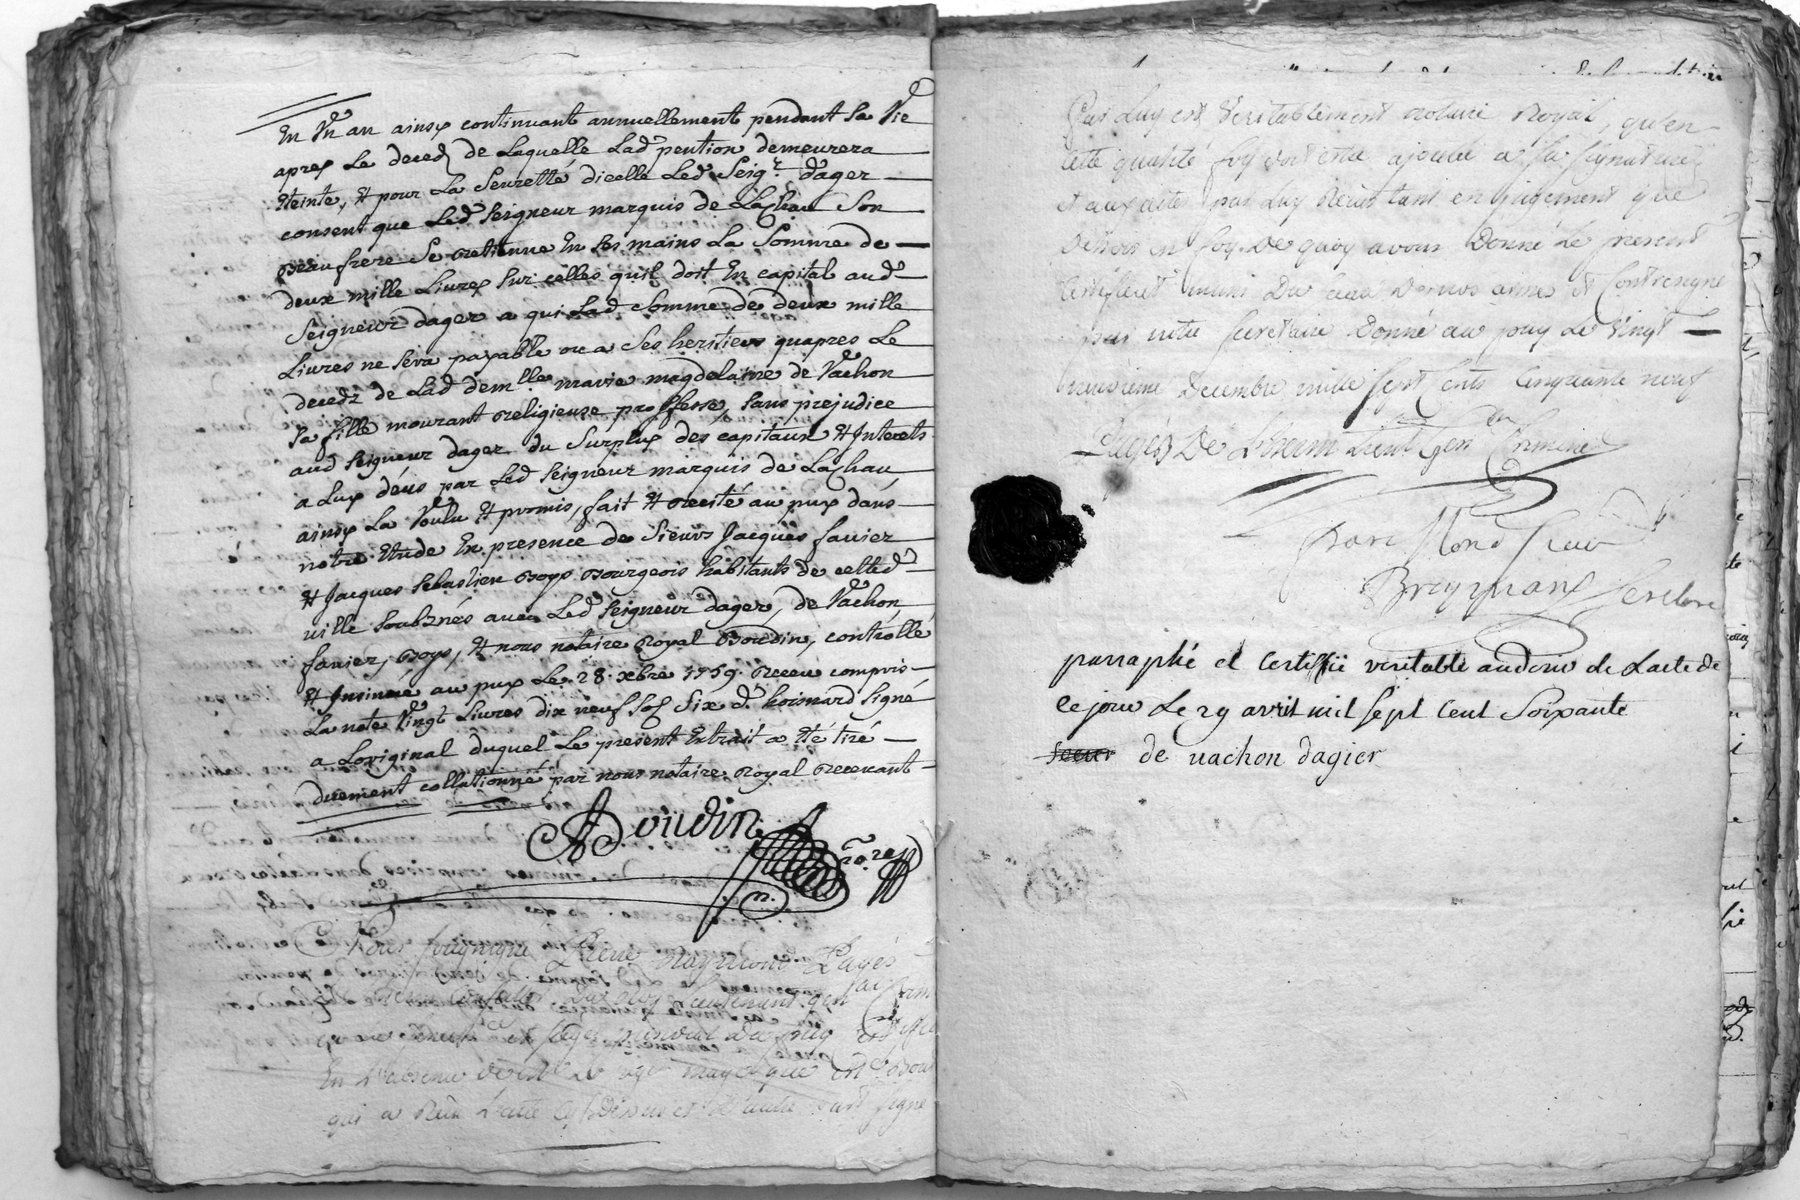 En Un an ainsy continuant annuellement pendant sa Vie
apres Le decedz de Laquelle Lad pention demeurera
Eteinte, Et pour La Seuretté dicelle Led Seigr dager
consent que Led Seigneur marquis de Lachau Son
Beaufrere Se retienne En Ses mains La Somme de
deux mille Livres Sur celles quil doit En capital aud
Seigneur dager a qui Lad Somme de deux mille
Livres ne Sera payable ou a Ses heritiers quapres Le
decedz de Lad demlle marie magdelaine de Vachon
Sa fille mourant Religieuse proffesse, Sans prejudice
aud Seigneur dager du Surplus des capitaux Et Interets
a Luy deus par Led Seigneur marquis de Lachau
ainsy La Voulu Et promis, fait Et recité au puy dans
notre Etude En presence de Sieurs Jacques favier
Et Jacques Sebastien Boys Bourgeois habitants de cette d
ville Soubznés avec Led Seigneur dager, de Vachon,
favier, Boys, Et nous notaire Royal Boudin, contrôllé
Et Insinué au puy Le 28 xbre 1759 Receu compris
La note Vingt Livres dix neuf Sols Six d. hoismard Signé
a Loriginal duquel Le present Extrait a Eté tiré
duement collationné par nous notaire Royal Recevant
Boudin nore
n.
Nous Pierre Raymond Pagés
Lieutenant gen
En L'absence de
qui a Reçu L'acte cy dessus est signé
Par Luy est Veritablement notaire Royal, qu'en
cette qualité foy doit estre ajoutée a sa signature
et aux actes par Luy Recus tant en jugement que
Dehors en foy De quoy avons Donné Le present
Certificat muni Du sceau De nos armes Et Contresigné
par notre secretaire Donné au puy Le Vingt
neuvieme Decembre mille sept Cents Cinquante neuf
Pagés De Lherm Lieut gen Criminel
Par Mond Sieur
parraphé et Certiffié veritable au desir de Lacte de
ce jour Le 29 avril mil sept Cent Soixante
de vachon dagier